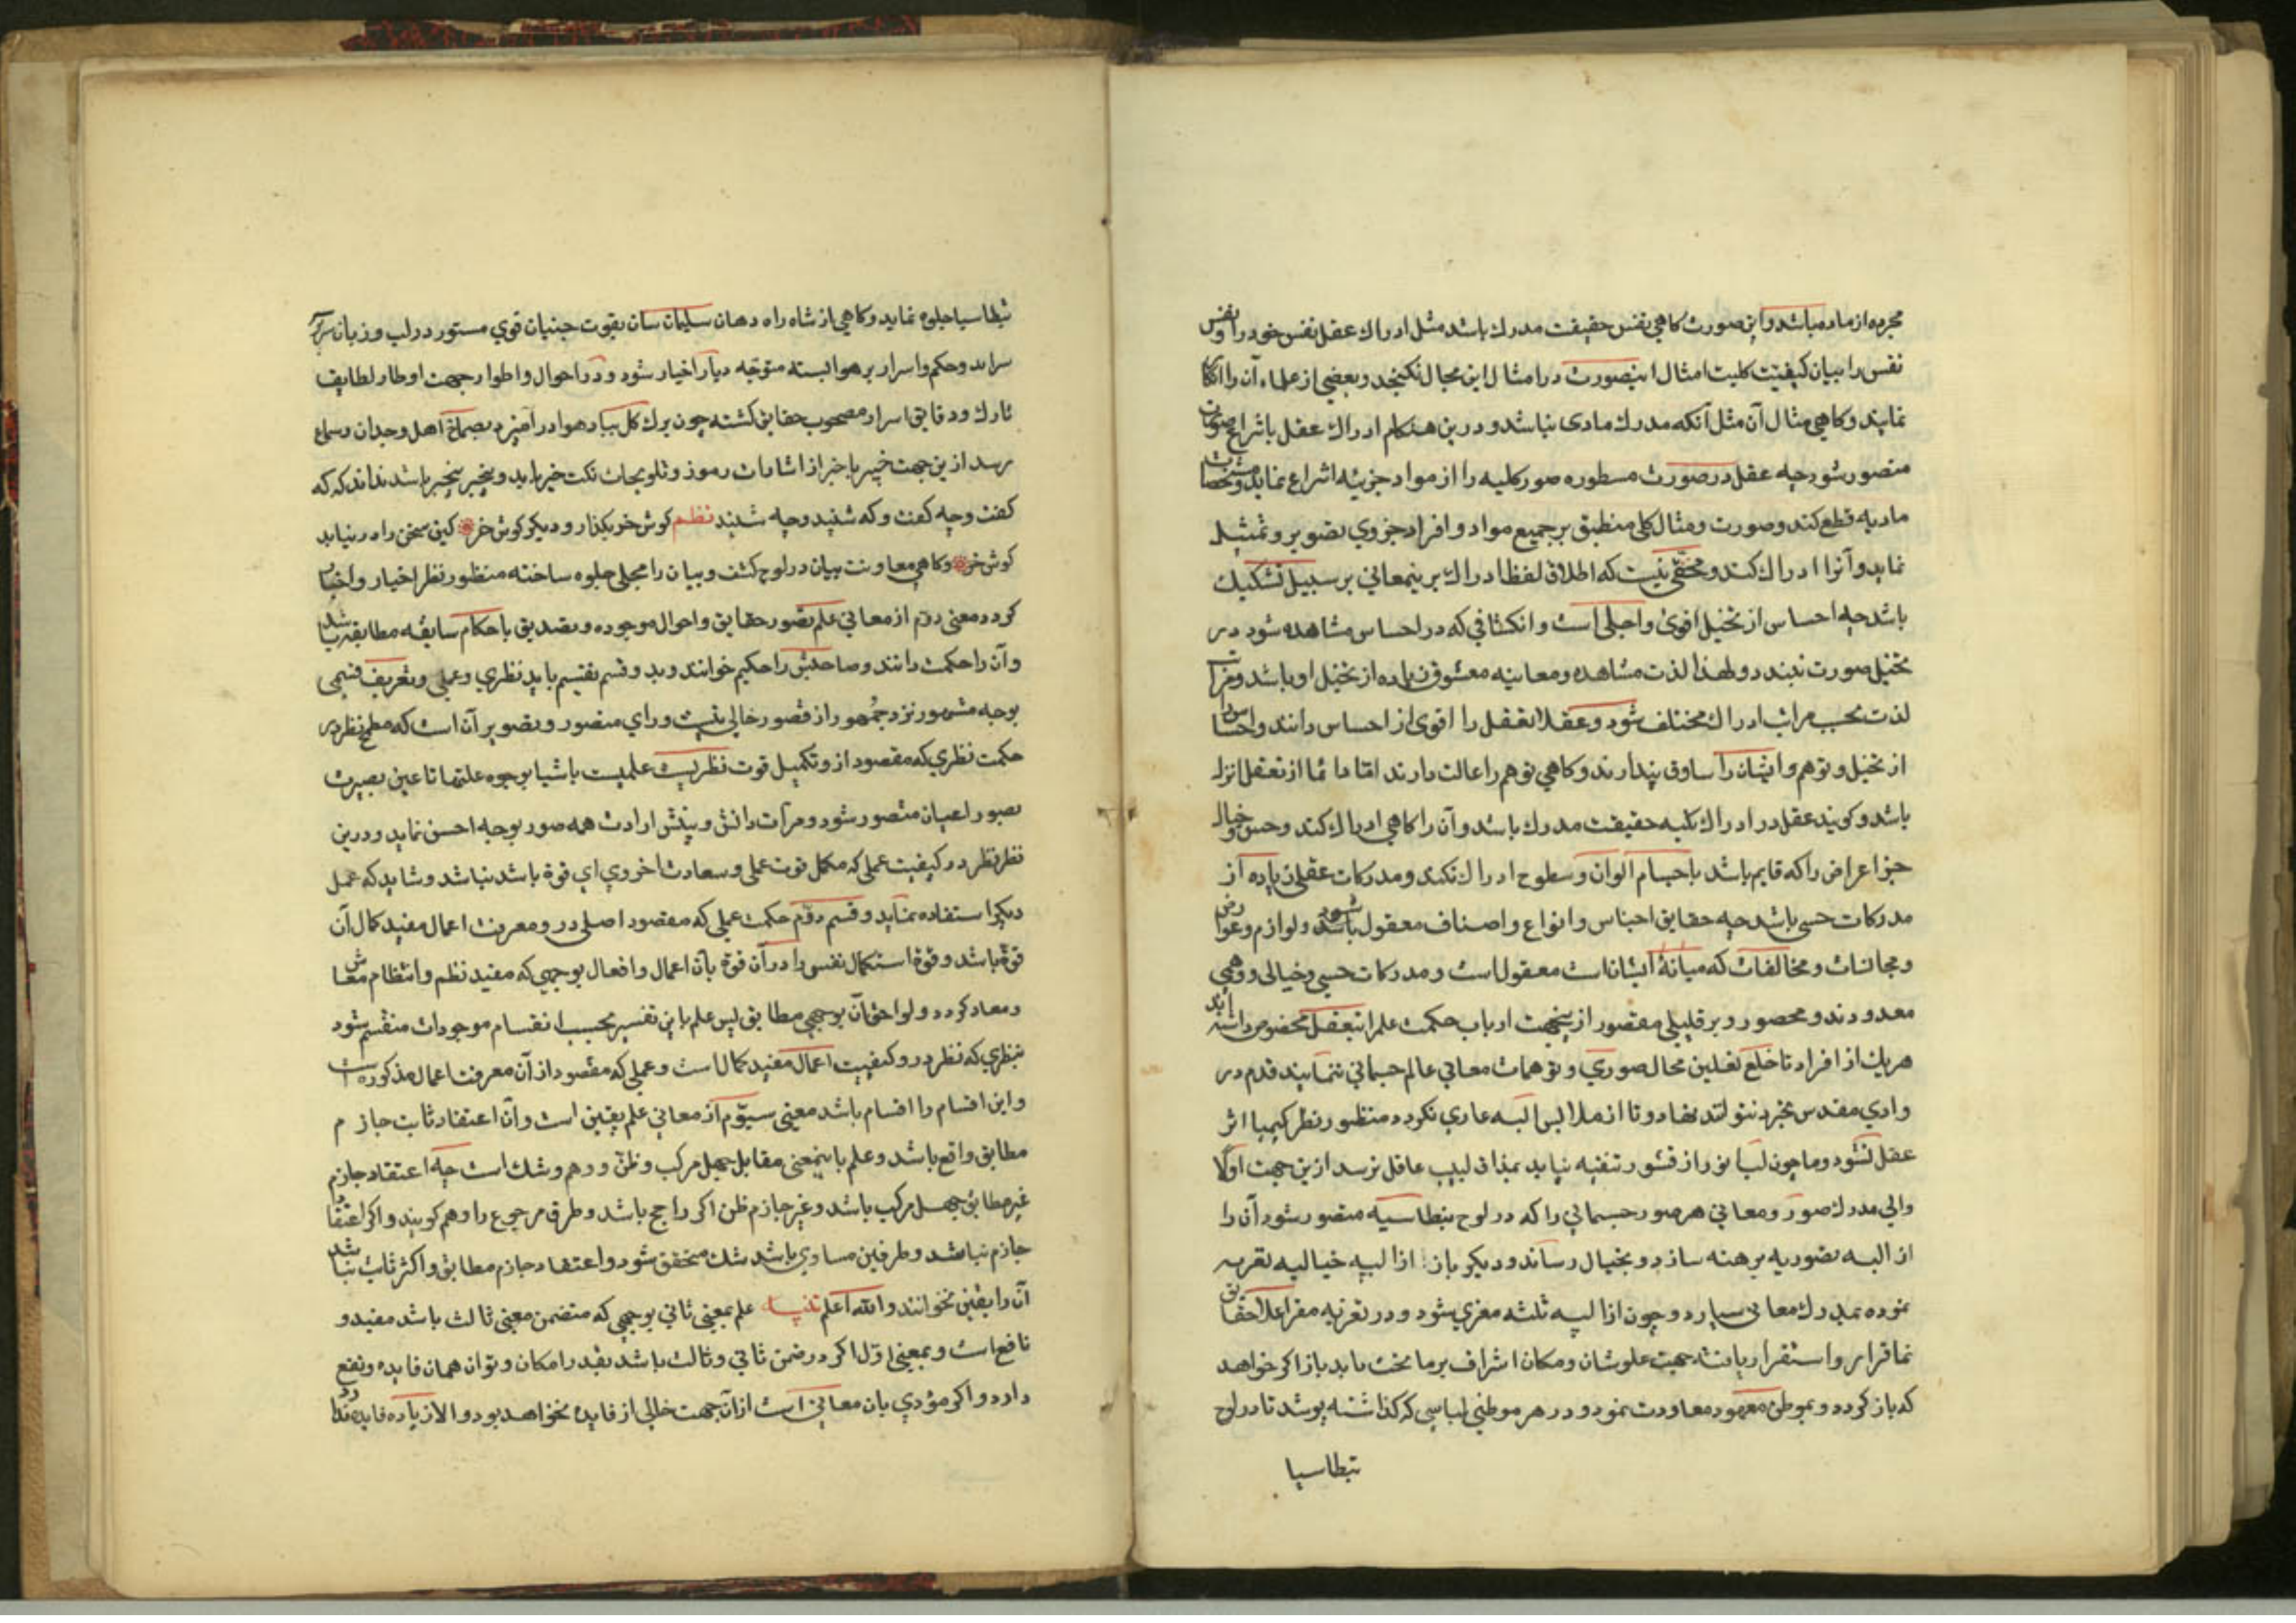 مجرده از ماده باشد و این صورت کاهی نفس حقیقت مدرك باشد مثل ادراك عقل نفس خود را و نفس
نفس را بیان کیفیت کلیت امثال اینصورت در امثال این مجال نکنجد و بعضی از علماء آن را انکا
نمایند و کاهی مثال آن مثل آنکه مدرك مادی نباشد و درین هنکام ادراك عقل بانتراع صورتان
متصور شود چه عقل در صورت مسطوره صور کلیه را از مواد جزئیه انتراع نماید و مشخصات
مادیه قطع کند و صورت و مثال کلی منطبق بر جمیع مواد و افراد جزوی تصویر و تمثیل
نماید و آنرا ادراك کند و مخفی نیست که اطلاق لفظ ادراك برینمعانی بر سبیل تشکیك
باشد چه احساس از تخیل اقوی و اجلی است و انکشافی که در احساس مشاهده شود در
تخیل صورت نبندد و لهذا لذت مشاهده و معاینه معشوق زیاده از تخیل او باشد و مراتب
لذت بحسب مراتب ادراك مختلف شود و عقلا تعقل را اقوی از احساس دانند و احساس
از تخیل و توهم و ایشان را مساوق پندارند و کاهی توهم را عالت دارند اما دائما از تعقل انزل
باشد و کویند عقل در ادراك بکنه حقیقت مدرك باشد و آن را کاهی ادراك کند و حس و خیال
جز اعراض را که قایم باشد باجسام الوان و سطوح ادراك نکند و مدرکات عقلی زیاده از
مدرکات حسی باشد چه حقایق اجناس و انواع و اصناف معقول شود و لوازم و عوارض
و مجانسات و مخالفات که میانهٔ ایشانست معقول است و مدرکات حسی و خیالی و وهمی
معدودند و محصور و بر قلیلی مقصور ازینجهت ارباب حکمت علم را بتعقل مخصوص داشته اند
هریك از افراد تا خلع نعلین محال صوری و توهمات معانی عالم جسمانی ننمایند قدم در
وادی مقدس تجرد نتوانند نهاد و تا از ملابس البسه عاری نکردد منظور نظر کیمیا اثر
عقل نشود و ما چون لباب از قشور تنقیه نیابد بمذاق لبیب عاقل نرسد ازین جهت اولا
والی مدرك صور و معانی هر صور جسمانی را که در لوح بنطاسیه متصور شود آن را
از البسه تصوریه برهنه سازد و بخیال رساند و دیکر باز از البسه خیالیه تعریه
نموده بمدرك معانی سپارد و چون از البسه ثلثه معری شود و در تعریه مقر اعلا حقایق
نما قرار و استقرار یافته جهت علو شان و مکان اشراف بر ما تحت یابد باز اکر خواهد
که باز کردد و بموطن معهود معاودت نمود و در هر موطنی لباسی که کذاشته پوشد تا در لوح
بنطاسیا
بنطاسیا جلوه نماید و کاهی از شاه راه دهان سلیمان سان بقوت جنیان قوی مستور در لب و زبان سرآ
سراید و حکم و اسرار بر هوا بسته متوجه دیار اخیار شود و در احوال و اطوار جهت اوطار لطایف
تارك و دقایق اسرار مصحوب حقایق کشته چون برك کل بباد هوا در آمیزد بصماخ اهل وجدان و سماع
رسد ازین جهت خبیر باخبر از اشارات رموز و تلویحات نکت خبر یابد و بیخبر بیخبر باشد نداند که که
کفت و چه کفت و که شنید و چه شنید نظم کوش خر بکذار و دیکر کوش خر کین سخن را در نیابد
کوش خر و کاهی معاونت بیان در لوح کشف و بیان را مجلی جلوه ساخته منظور نظر اخیار و احباب
کردد معنی دوم از معانی علم تصور حقایق و احوال موجوده و تصدیق باحکام سابقه مطابقه باشد
و آن را حکمت دانند و صاحبش را حکیم خوانند و بدو قسم تقسیم یابد نظری و عملی و تعریف قسمی
بوجه مشهور نزد جمهور از قصور خالی نیست و رای منصور و تصویر آن است که مطمح نظر در
حکمت نظری که مقصود ازو تکمیل قوت نظریست علمیست باشیا بوجوه علیتها تا عین بصیرت
بصور اعیان متصور شود و مرآت دانش و بینش ارادت همه صور بوجه احسن نماید و درین
نظر نظر در کیفیت عملی که مکمل قوت عملی و سعادت اخروی ای قوة باشد نباشد و شاید که عمل
دیکر استفاده نماید و قسم دوم حکمت عملی که مقصود اصلی درو معرفت اعمال مفید کمال آن
قوة باشد و قوة استکمال نفس را در آن قوة بآن اعمال و افعال بوجهی که مفید نظم و انتظام معاش
و معاد کردد و لواحق آن بوجهی مطابق لیس علم باین تفسیر بحسب انقسام موجودات منقسم شود
بنظری که نظر درو کیفیت اعمال مفید کمال است و عملی که مقصود از آن معرفت اعمال مذکوره است
و این اقسام را اقسام باشد معنی سیوم از معانی علم یقین است و آن اعتقاد ثابت جازم
مطابق واقع باشد و علم باینمعنی مقابل جهل مرکب و ظن و وهم و شك است چه اعتقاد جازم
غیر مطابق جهل مرکب باشد و غیر جازم ظن اکر راجح باشد و طرف مرجوح را وهم کویند و اکر اعتقاد
جازم نباشد و طرفین مساوی باشد شك متحقق شود و اعتقاد جازم مطابق و اکثر ثابت نباشد
آن را یقین نخوانند و الله اعلم تنبیه علم بمعنی ثانی بوجهی که متضمن معنی ثالث باشد مفید و
نافع است و بمعنی اول اکر در ضمن ثانی و ثالث باشد بقدر امکان و توان همان فایده و نفع
دارد و اکر مؤدی بان معانی است ازان جهت خالی از فایده نخواهد بود و الا زیاده فایده ندارد